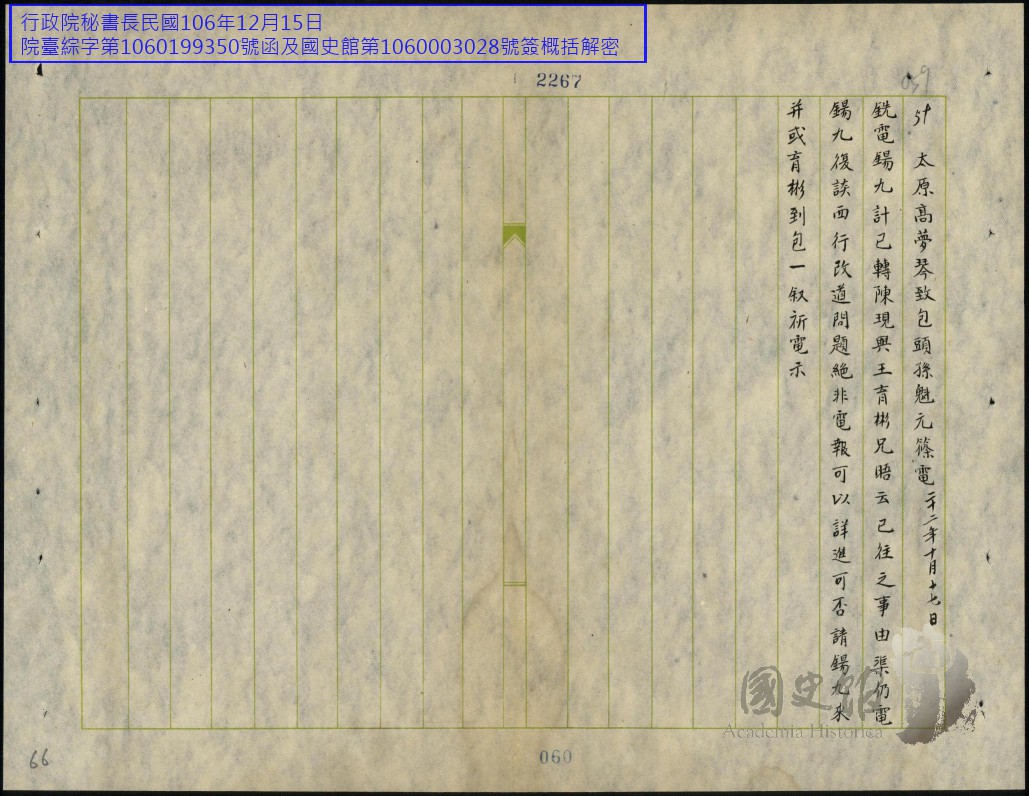 行政院秘書長民國106年12月15日
院臺綜字第1060199350號函及國史館第1060003028號簽概括解密
2267
059
太原高夢琴致包頭孫魁元篠電二十二年十月十七日
銑電錫九計已轉陳現與王育彬兄晤云已往之事由渠仍電
錫九復談西行改道問題絕非電報可以詳進可否請錫九來
并或育彬到包一叙祈電示
國史館
Academia Historica
66
060